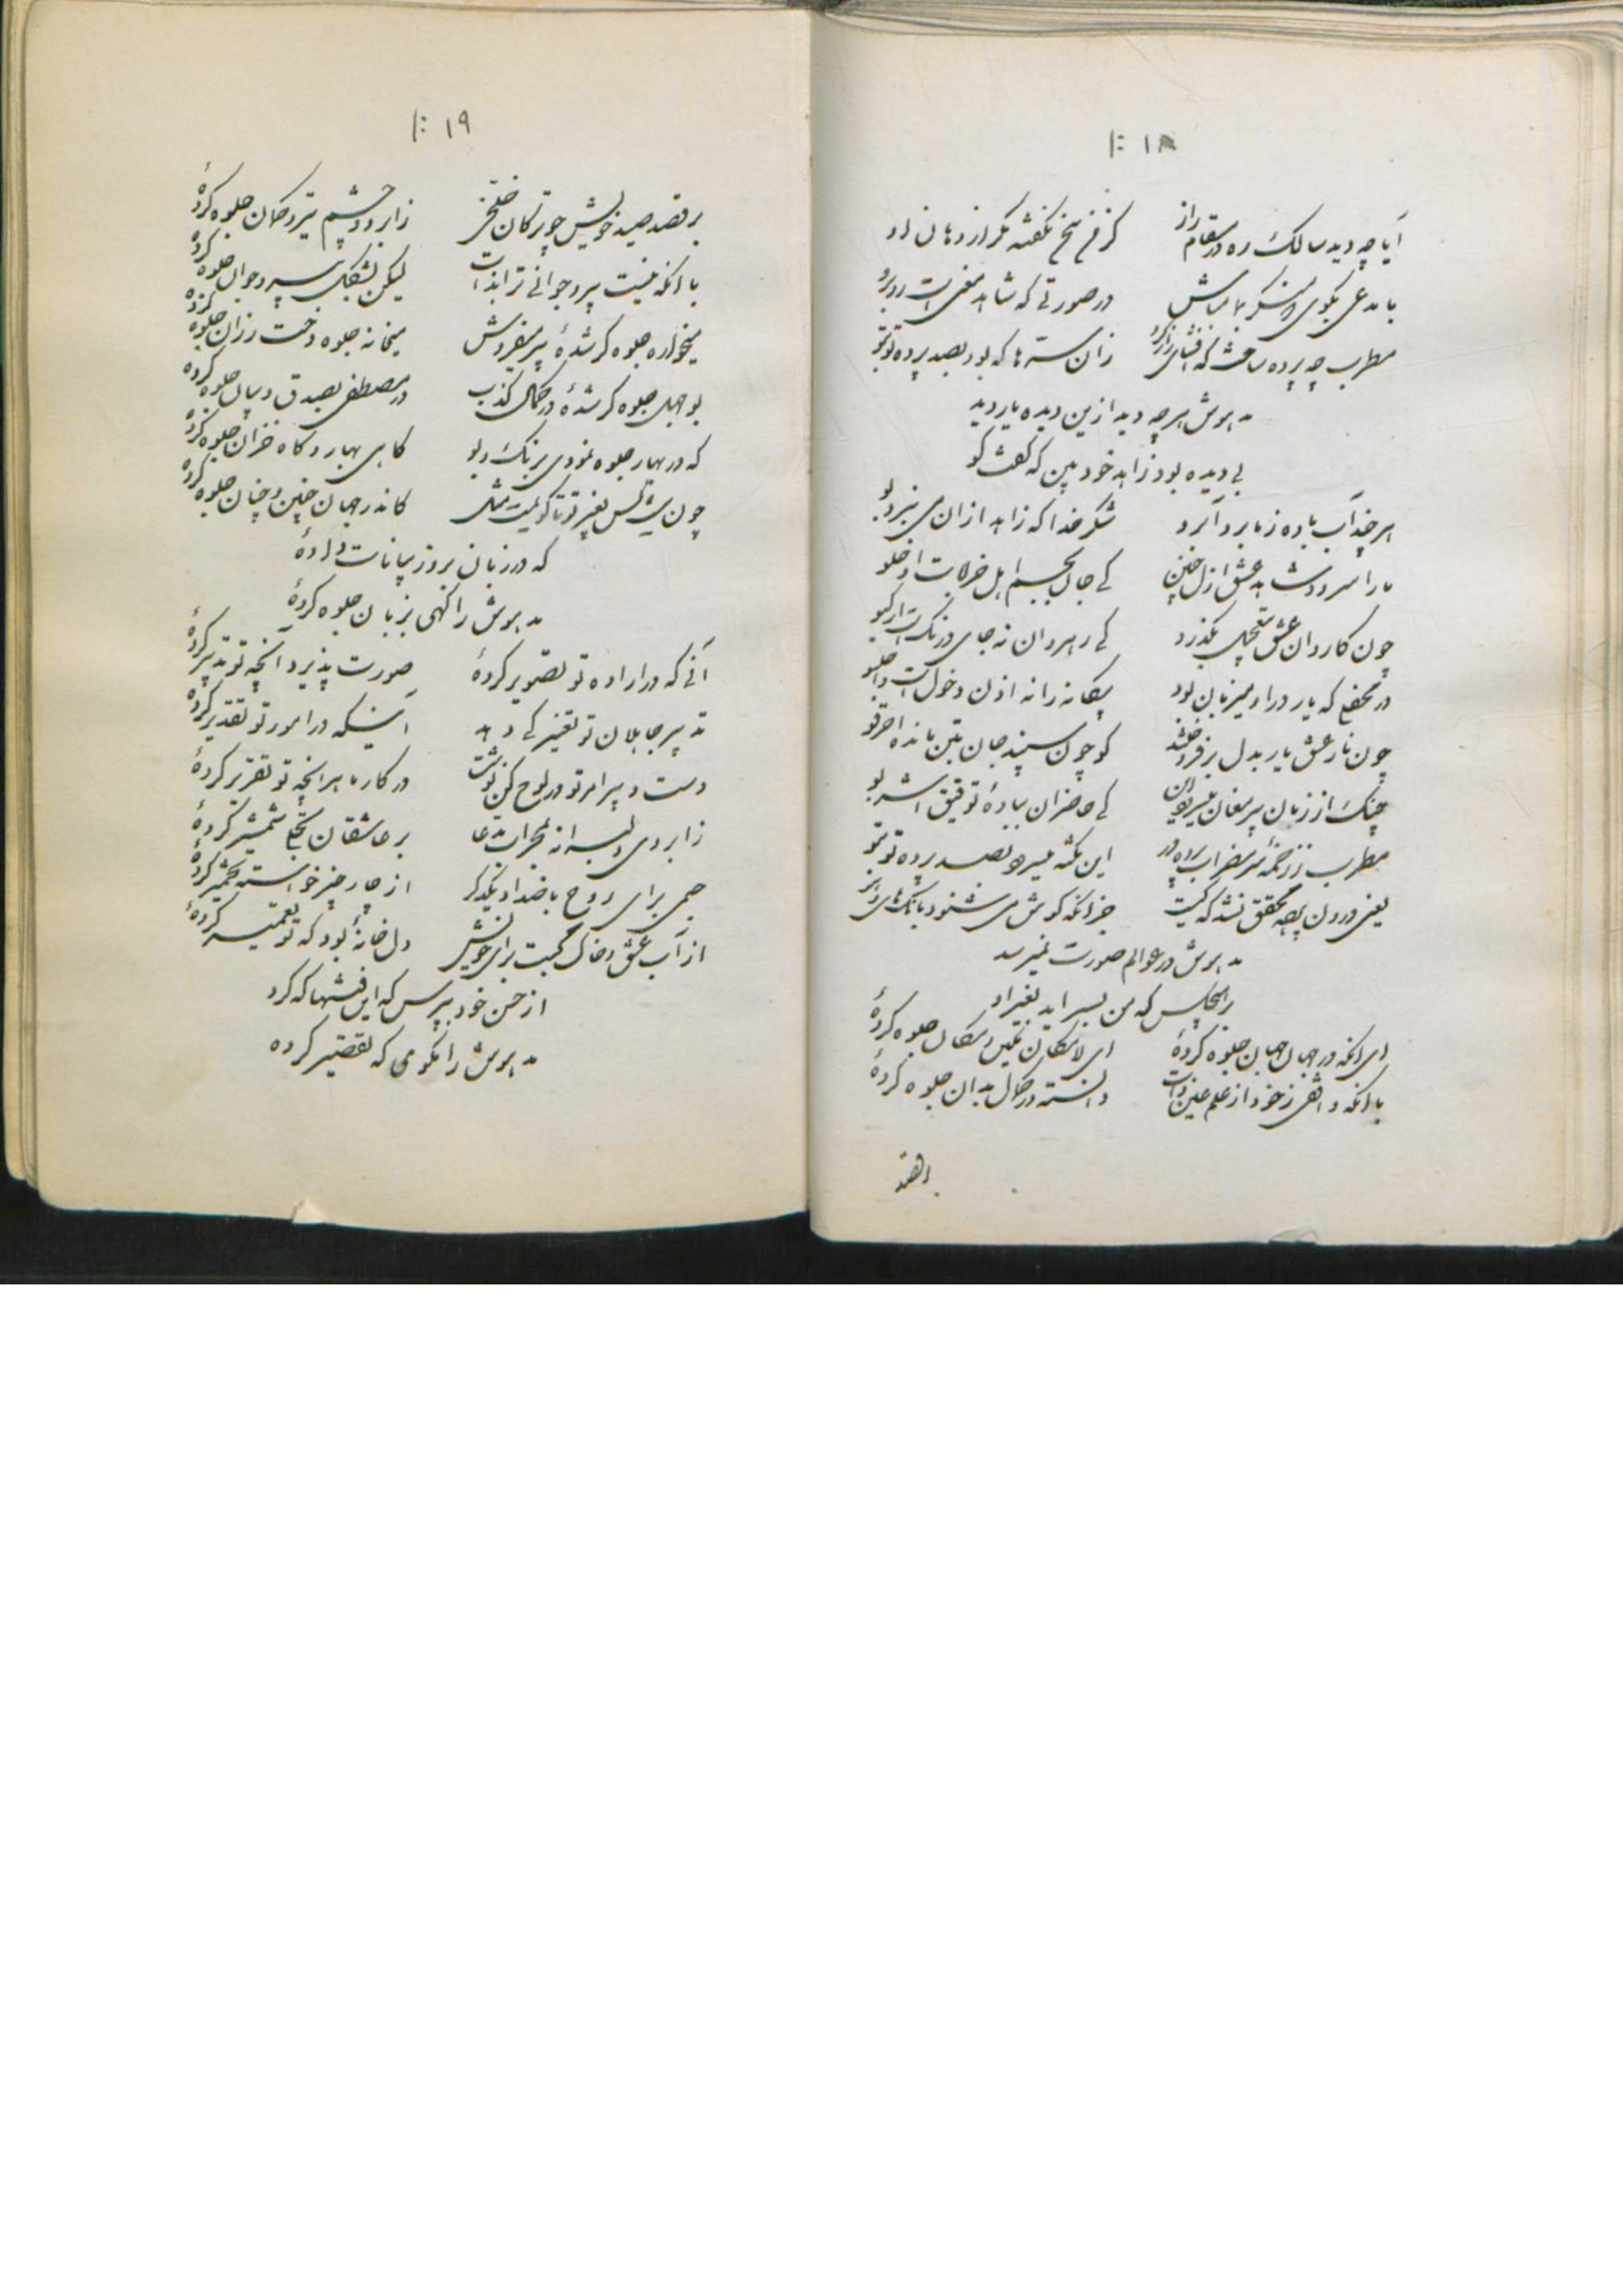 ۱۸
آیا چه دید سالک ره در مقام راز    کز فم سخن نگفته مگر از دهان او
با مدعی بگوی    در صورتی که شاهد معنی است روبرو
مطرب چه پرده ساخت که افشای راز کرد    زان سرّها که بود بصد پرده تو بتو
مدهوش هر چه دید ازین دیده یار دید
بی دیده بود زاهد خودبین که گفت کو
هر چند آب باده ز ما برد آبرو    شکر خدا که زاهد ازان می نبرد بو
ما را سرود شاهد عشق ازل چنین    کی جان بجسم اهل خرابات
چون کاروان عشق بتعجیل بگذرد    کی رهروان نه جای درنگ است
در محفلی که یار درا و میزبان بود    بیگانه را نه اذن دخول است
چون نار عشق یار بدل بر فروختند    کو چون سپند جان بتن مانده
چنگ از زبان پیر مغان    کی حاضران بباده توفیق اشربو
مطرب ز زخمه سر مضراب پرده در    این نکته میسرود بصد پرده تو بتو
یعنی درون پرده محقق نشد که کیست    جز آنکه گوش می شنود بانگ های
مدهوش در عوالم صورت نمیرسد
بغیر او
ای آنکه در جهان جهان جلوه کردهٔ    ای لامکان مکین و مکان جلوه کردهٔ
با آنکه واقفی ز خود از علم عین ذات    دانسته در کمال بدان جلوه کردهٔ
۱۹
بر قصد صید خویش چو ترکان خلخی    ز ابرو و چشم تیر و کمان جلوه کردهٔ
با آنکه نیست پیر و جوانی ترا بذات    لیکن بشکل پیر و جوان جلوه کردهٔ
میخواره جلوه گر شدهٔ پیر میفروش    میخانه جلوه دخت رزان جلوه کردهٔ
بوجهل جلوه گر شدهٔ در کمال کذب    در مصطفی بصدق و بیان جلوه کردهٔ
که در بهار جلوه نمودی برنگ و بو    گاهی بهار و گاه خزان جلوه کردهٔ
چون نیست کس بغیر تو تا گویمت مثل    کاندر جهان چنین و چنان جلوه کردهٔ
که در زبان بروز بیانات دادهٔ
مدهوش را گهی بزبان جلوه کردهٔ
آنی که در ارادهٔ تو تصویر کردهٔ    صورت پذیرد آنچه تو تدبیر کردهٔ
تدبیر جاهلان تو تغییر کی دهد    در امور تو تقدیر کردهٔ
دست دبیر امر تو در لوح کن نوشت    در کار ما هر آنچه تو تقریر کردهٔ
ز ابروی دلبرانه بمحراب مدعا    بر عاشقان شمشیر کردهٔ
جسمی برای روح باضداد یکدگر    از چار چیز خواسته تخمیر کردهٔ
از آب عشق و خاک محبت برای خویش    دل خانهٔ بود که تو تعمیر کردهٔ
از حسن خود بپرس که این فتنه‌ها که کرد
مدهوش را نگوی که تقصیر کرده